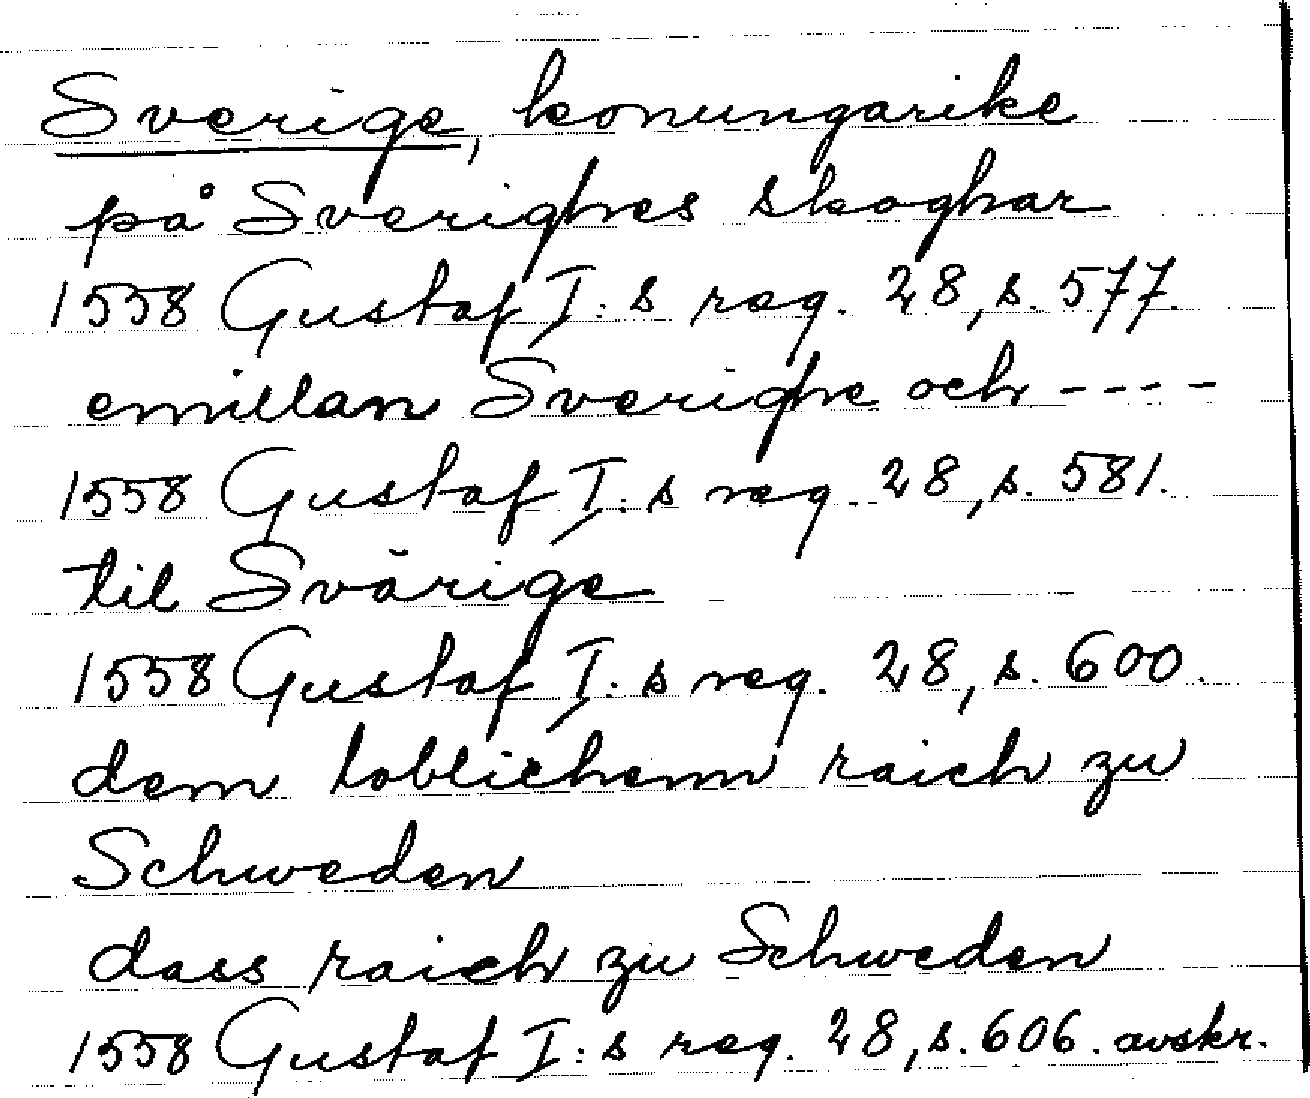 Sverige, konungarike
på Sverighes skoghar
1558 Gustaf I:s reg. 28, s. 577.
emillan Sverighe och ----
1558 Gustaf I:s reg. 28, s. 581.
til Svärige
1558 Gustaf I:s reg. 28, s. 600.
dem loblichenn raich zu
Schweden
dass raich zu Schweden
1558 Gustaf I:s reg. 28, s. 606. avskr.